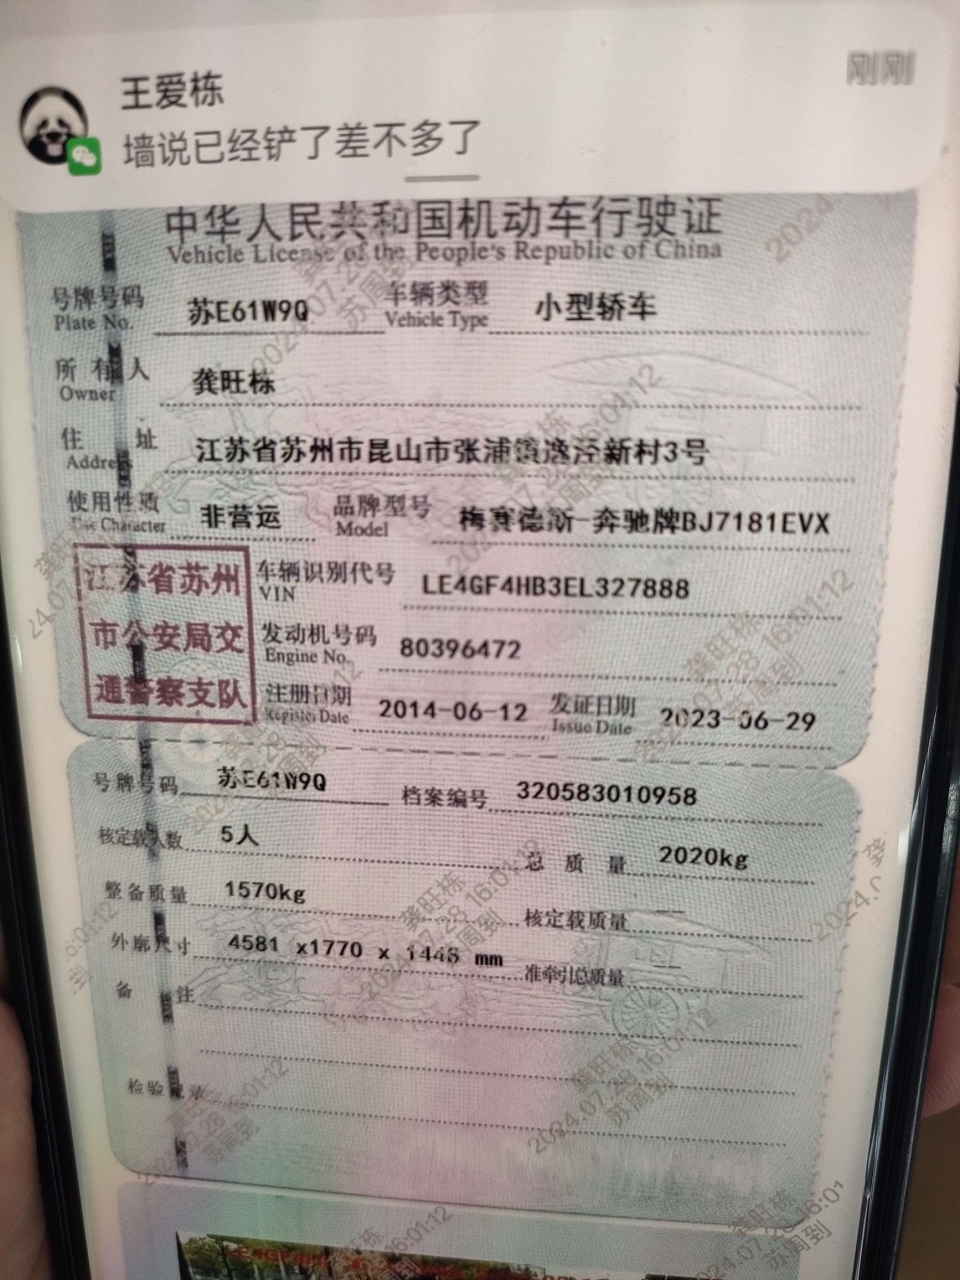 王爱栋
刚刚
墙说已经铲了差不多了
中华人民共和国机动车行驶证
Vehicle License of the People's Republic of China
号牌号码 苏E61W9Q 车辆类型 小型轿车
Plate No. Vehicle Type
所有人 龚旺栋
Owner
住址 江苏省苏州市昆山市张浦镇逸泾新村3号
Address
使用性质 非营运 品牌型号 梅赛德斯-奔驰牌BJ7181EVX
Use Character Model
江苏省苏州
市公安局交
通警察支队
车辆识别代号 LE4GF4HB3EL327888
VIN
发动机号码 80396472
Engine No.
注册日期 2014-06-12 发证日期 2023-06-29
Register Date Issue Date
号牌号码 苏E61W9Q 档案编号 320583010958
核定载人数 5人 总质量 2020kg
整备质量 1570kg 核定载质量 --
外廓尺寸 4581 x1770 x 1448 mm 准牵引总质量 --
备注
检验记录
龚旺栋
2024.07.28 16:01:12
苏周到